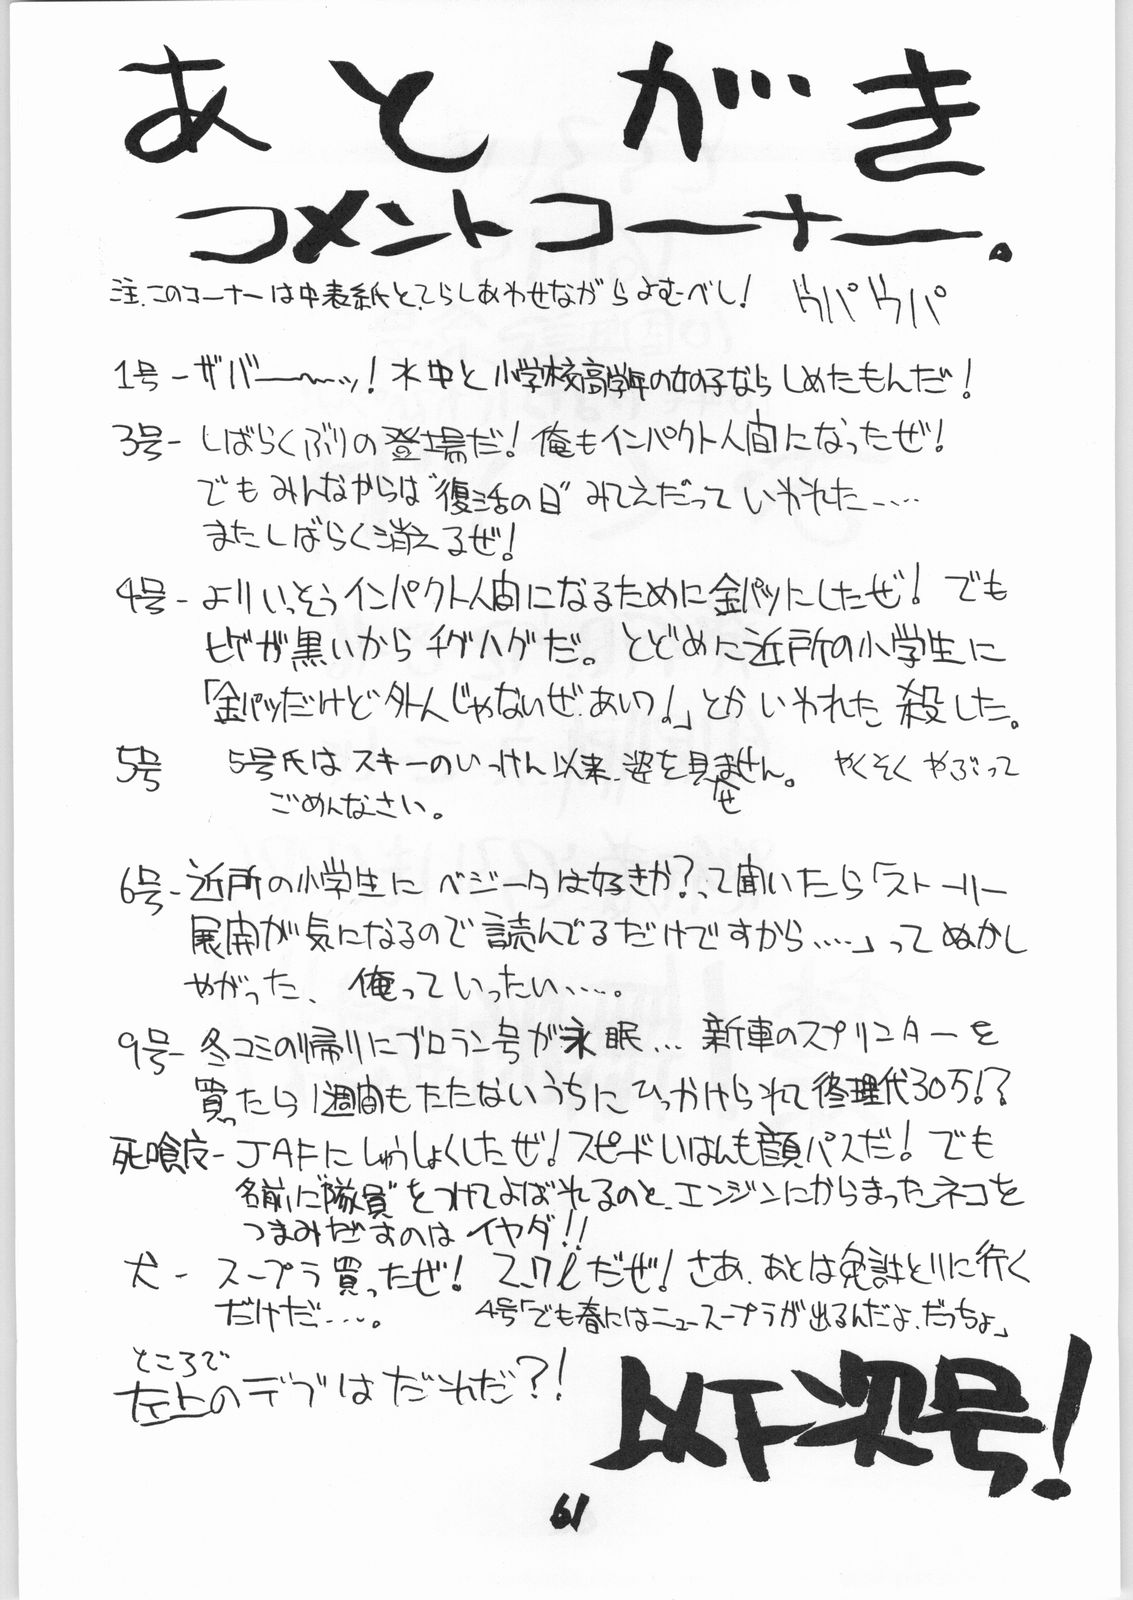 あとがき
コメントコーナー。
注.このコーナーは中表紙とてらしあわせながらよむべし! ウパウパ
1号-ザバー〜〜ッ! 水中と小学校高学年の女の子ならしめたもんだ!
3号-しばらくぶりの登場だ! 俺もインパクト人間になったぜ!
でもみんなからは"復活の日"みてえだっていわれた……
またしばらく消えるぜ!
4号-よりいっそうインパクト人間になるために金パツにしたぜ! でも
ヒゲが黒いからチグハグだ。とどめに近所の小学生に
「金パツだけど外人じゃないぜ.あいつ!」とかいわれた 殺した。
5号 5号氏はスキーのいっけん以来、姿を見ません。 やくそくやぶって
せ
ごめんなさい。
6号-近所の小学生にベジータは好きか?って聞いたら「ストーリー
展開が気になるので読んでるだけですから……」ってぬかし
やがった、俺っていったい……。
9号-冬コミの帰りにブロラン号が永眠... 新車のスプリンターを
買ったら1週間もたたないうちにひっかけられて修理代30万!?
死喰皮-JAFにしゅうしょくしたぜ! スピードいはんも顔パスだ! でも
名前に"隊員"をつけてよばれるのと、エンジンにからまったネコを
つまみだすのはイヤダ!!
犬-スープラ買ったぜ! 2.7ℓだぜ! さあ、あとは免許とりに行く
だけだ……。 4号「でも春にはニュースープラが出るんだよ.だっちょ」
ところで
左上のデブはだれだ?!
以下次号!
61